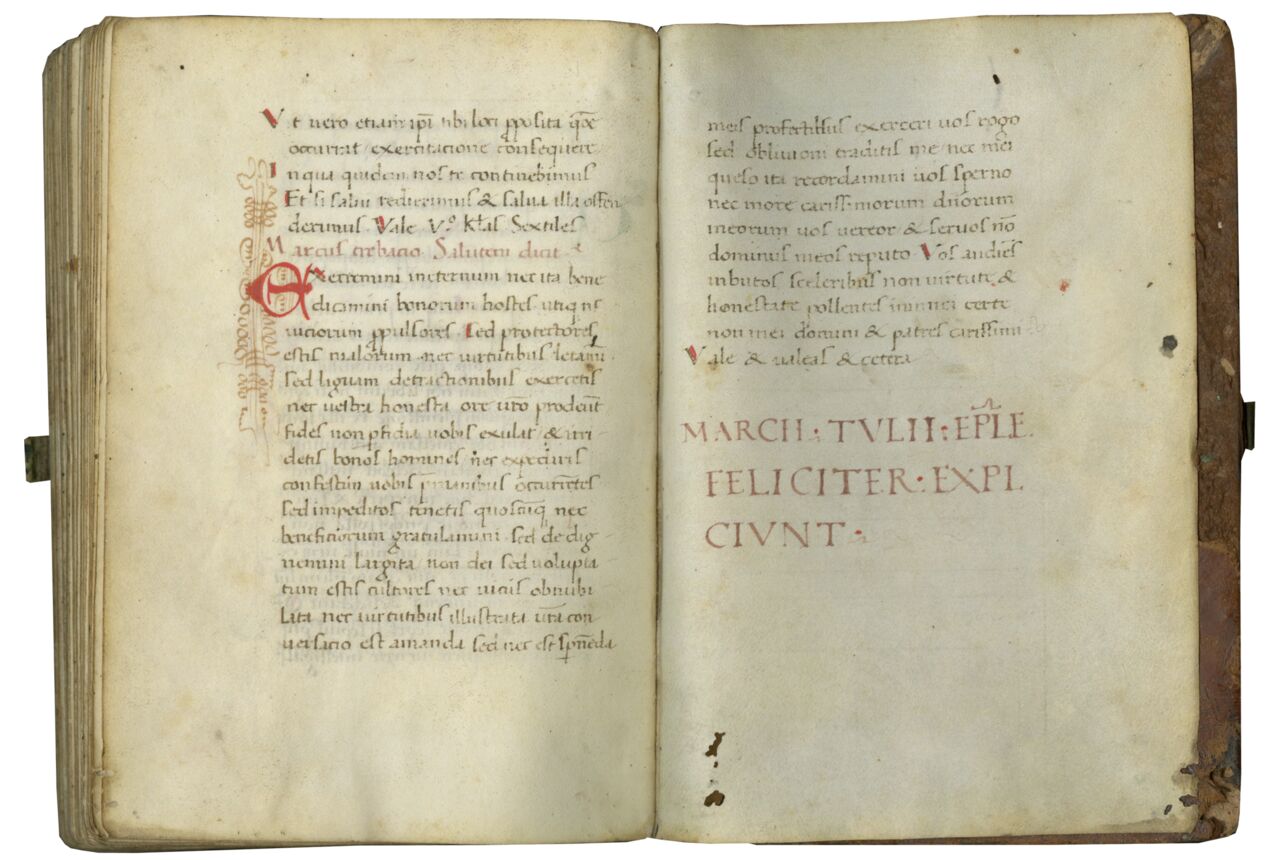 Vt vero etiam ipi tibi loci pposita qōe
occurrat exercitatione consequere
In qua quidem nos te continebimus
Et si salui redierimus & salua illa offen
derimus. Vale V.º kl'as Sextiles
Marcus trebacio Salutem dicit &
Exerremini ineternum nec ita bene
dicamini bonorum hostes utiq; ns
uiciorum ppulsores. Sed protectores
estis malorum nec virtutibus letamī
sed liguam detractionibus exercetis
nec uestra honesta ore ur̄o prodeūt
fides non pfidia uobis exulat & irri
detis bonos homines nec expeditis
confestim uobis pranibus occurrētes
sed impeditos tenetis quoscūq; nec
beneficiorum gratulamini sed de dig
nemini largita non dei sed uolupta
tum estis cultores nec uiciis obnubi
lata nec uirtutibus illustrata ur̄a con
uersacio est amanda sed nec est spneda
meis profectibus exerceri uos rogo
sed obliuioni traditis me nec mei
queso ita recordamini uos sperno
nec more carissimorum dn̄orum
meorum uos uereor & seruos nō
dominus meos reputo Vos audies
inbutos sceleribus non virtute &
honestate pollentes inimici certe
non mei domini & patres carissimi
Vale & ualeas & cetera
MARCII : TVLII : EPLE.
FELICITER : EXPL
CIVNT :